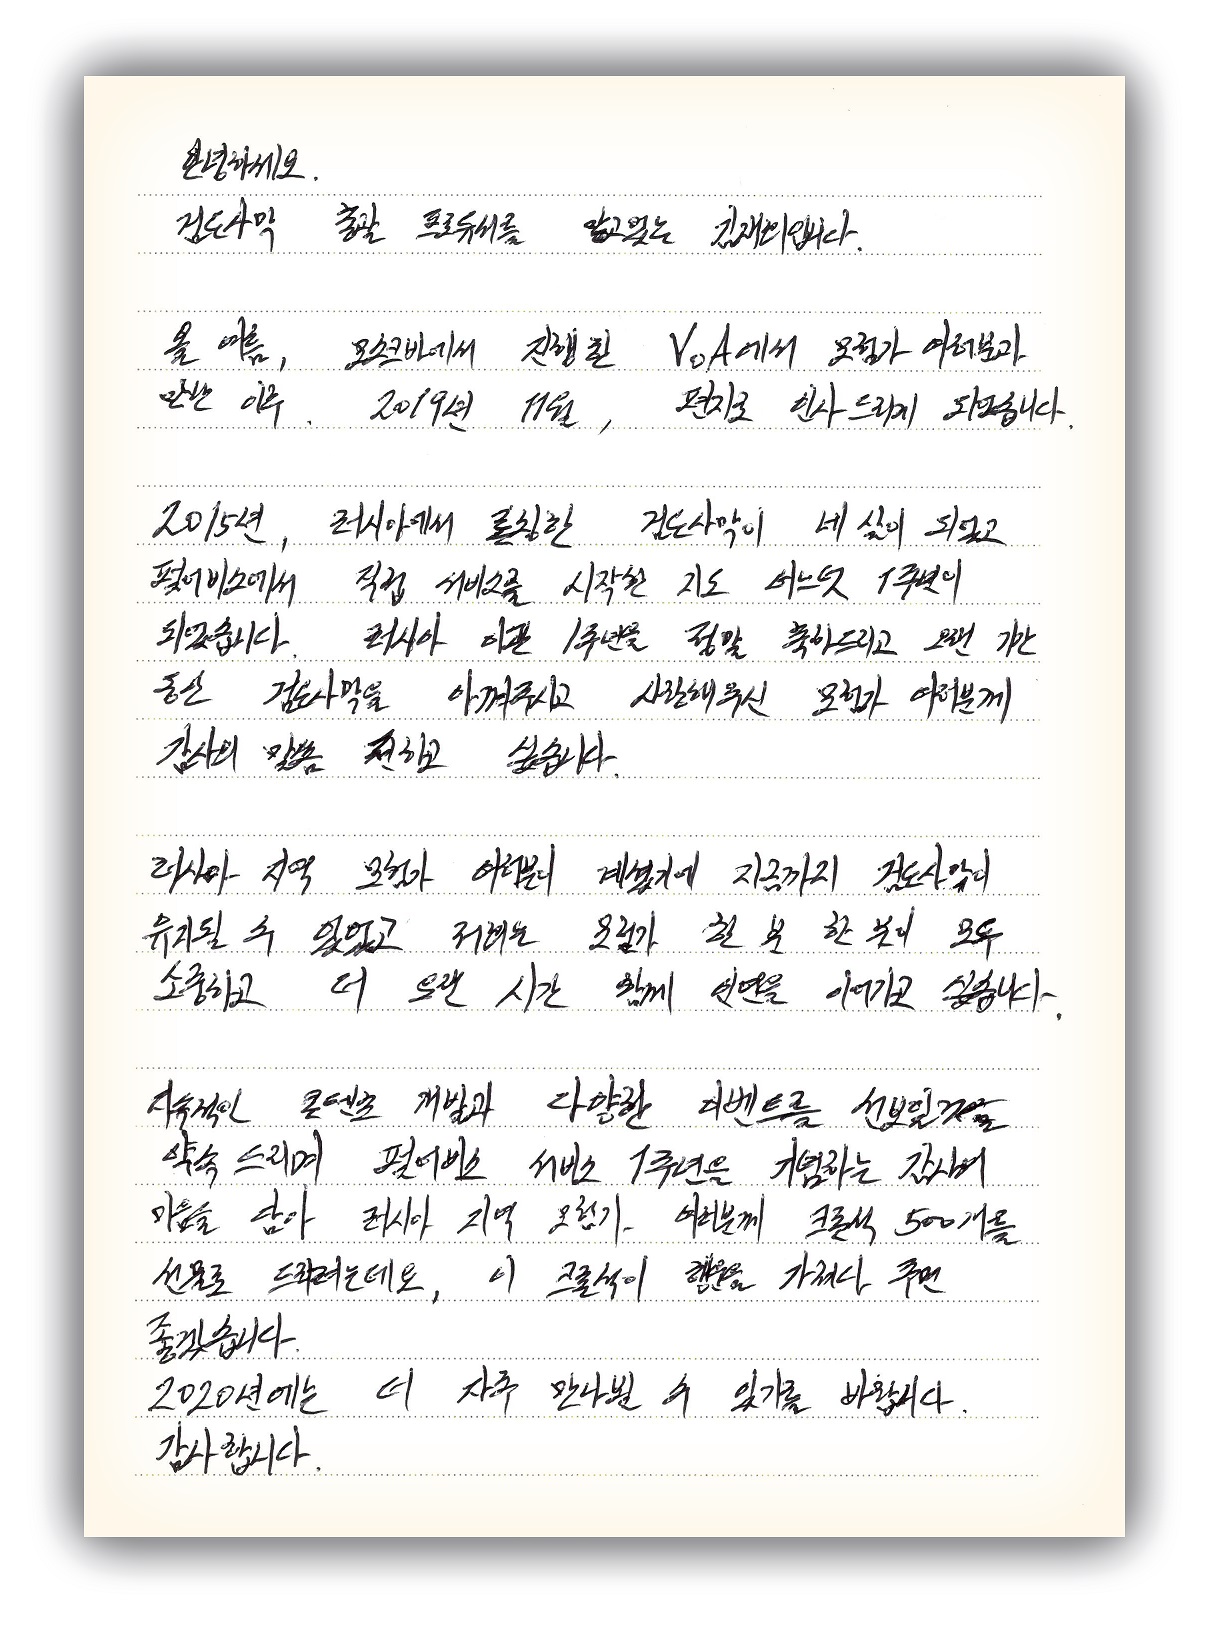 안녕하세요.
검은사막 총괄 프로듀서를 맡고있는 김재희입니다.
올 여름, 모스크바에서 진행된 VoA에서 모험가 여러분과
만난 이후. 2019년 11월, 편지로 인사드리게 되었습니다.
2015년, 러시아에서 론칭한 검은사막이 네 살이 되었고
펄어비스에서 직접 서비스를 시작한 지도 어느덧 1주년이
되었습니다. 러시아 이관 1주년을 정말 축하드리고 오랜 기간
동안 검은사막을 아껴주시고 사랑해주신 모험가 여러분께
감사의 말씀 전하고 싶습니다.
러시아 지역 모험가 여러분이 계셨기에 지금까지 검은사막이
유지될 수 있었고 저희는 모험가 한 분 한 분이 모두
소중하고 더 오랜 시간 함께 인연을 이어가고 싶습니다.
지속적인 콘텐츠 개발과 다양한 이벤트를 선보일것을
약속 드리며 펄어비스 서비스 1주년을 기념하는 감사의
마음을 담아 러시아 지역 모험가 여러분께 크론석 500개를
선물로 드리려는데요, 이 크론석이 행운을 가져다 주면
좋겠습니다.
2020년에는 더 자주 만나뵐 수 있기를 바랍니다.
감사합니다.